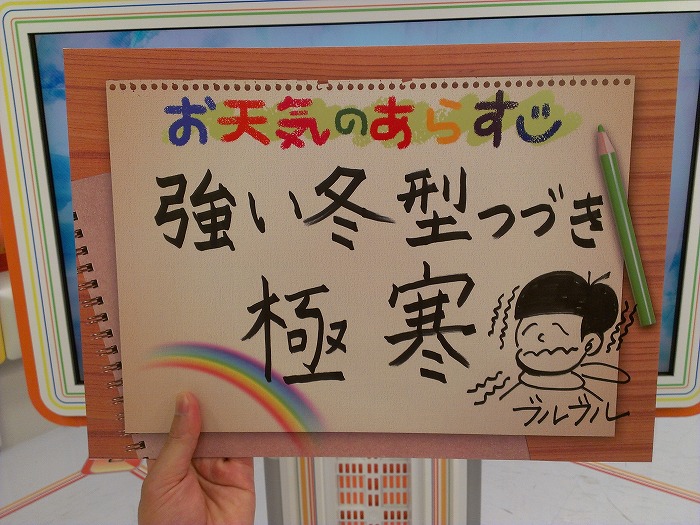 お天気のあらすじ
強い冬型つづき
極寒
ブルブル